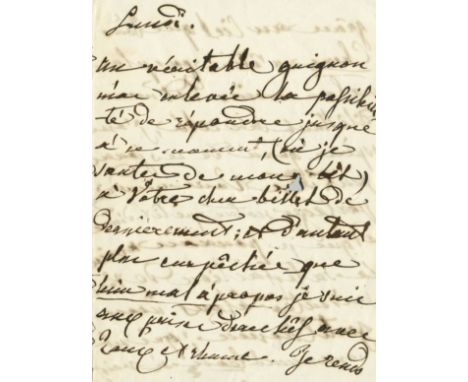 Lundi.
un véritable guignon
m'a enlevée la possibili
té de répondre jusque
à ce moment (où je
sautes de mon lit)
à Votre cher billet de
dernierement; et d'autant
plus empêchée que
bien mal à propos je suis
aux prises avec
toux et rhume. Je rends